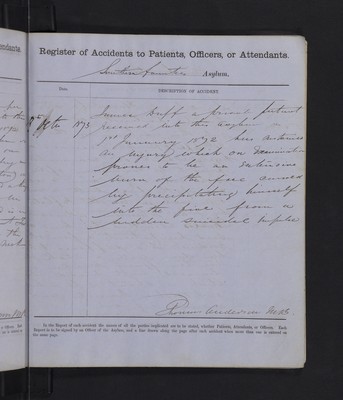 Register of Accidents to Patients, Officers, or Attendants.
Asylum.
Date.
DESCRIPTION OF ACCIDENT.
1873 James Duff a private patient
received into the Asylum
1st January 1872 has sustained
an injury which on examination
proves to be an extensive
burn of the face caused
by precipitating himself
into the fire from a
sudden suicidal impulse
In the Report of each accident the names of all the parties implicated are to be stated, whether Patients, Attendants, or Officers. Each
Report is to be signed by an Officer of the Asylum, and a line drawn along the page after each accident when more than one is entered on
the same page.